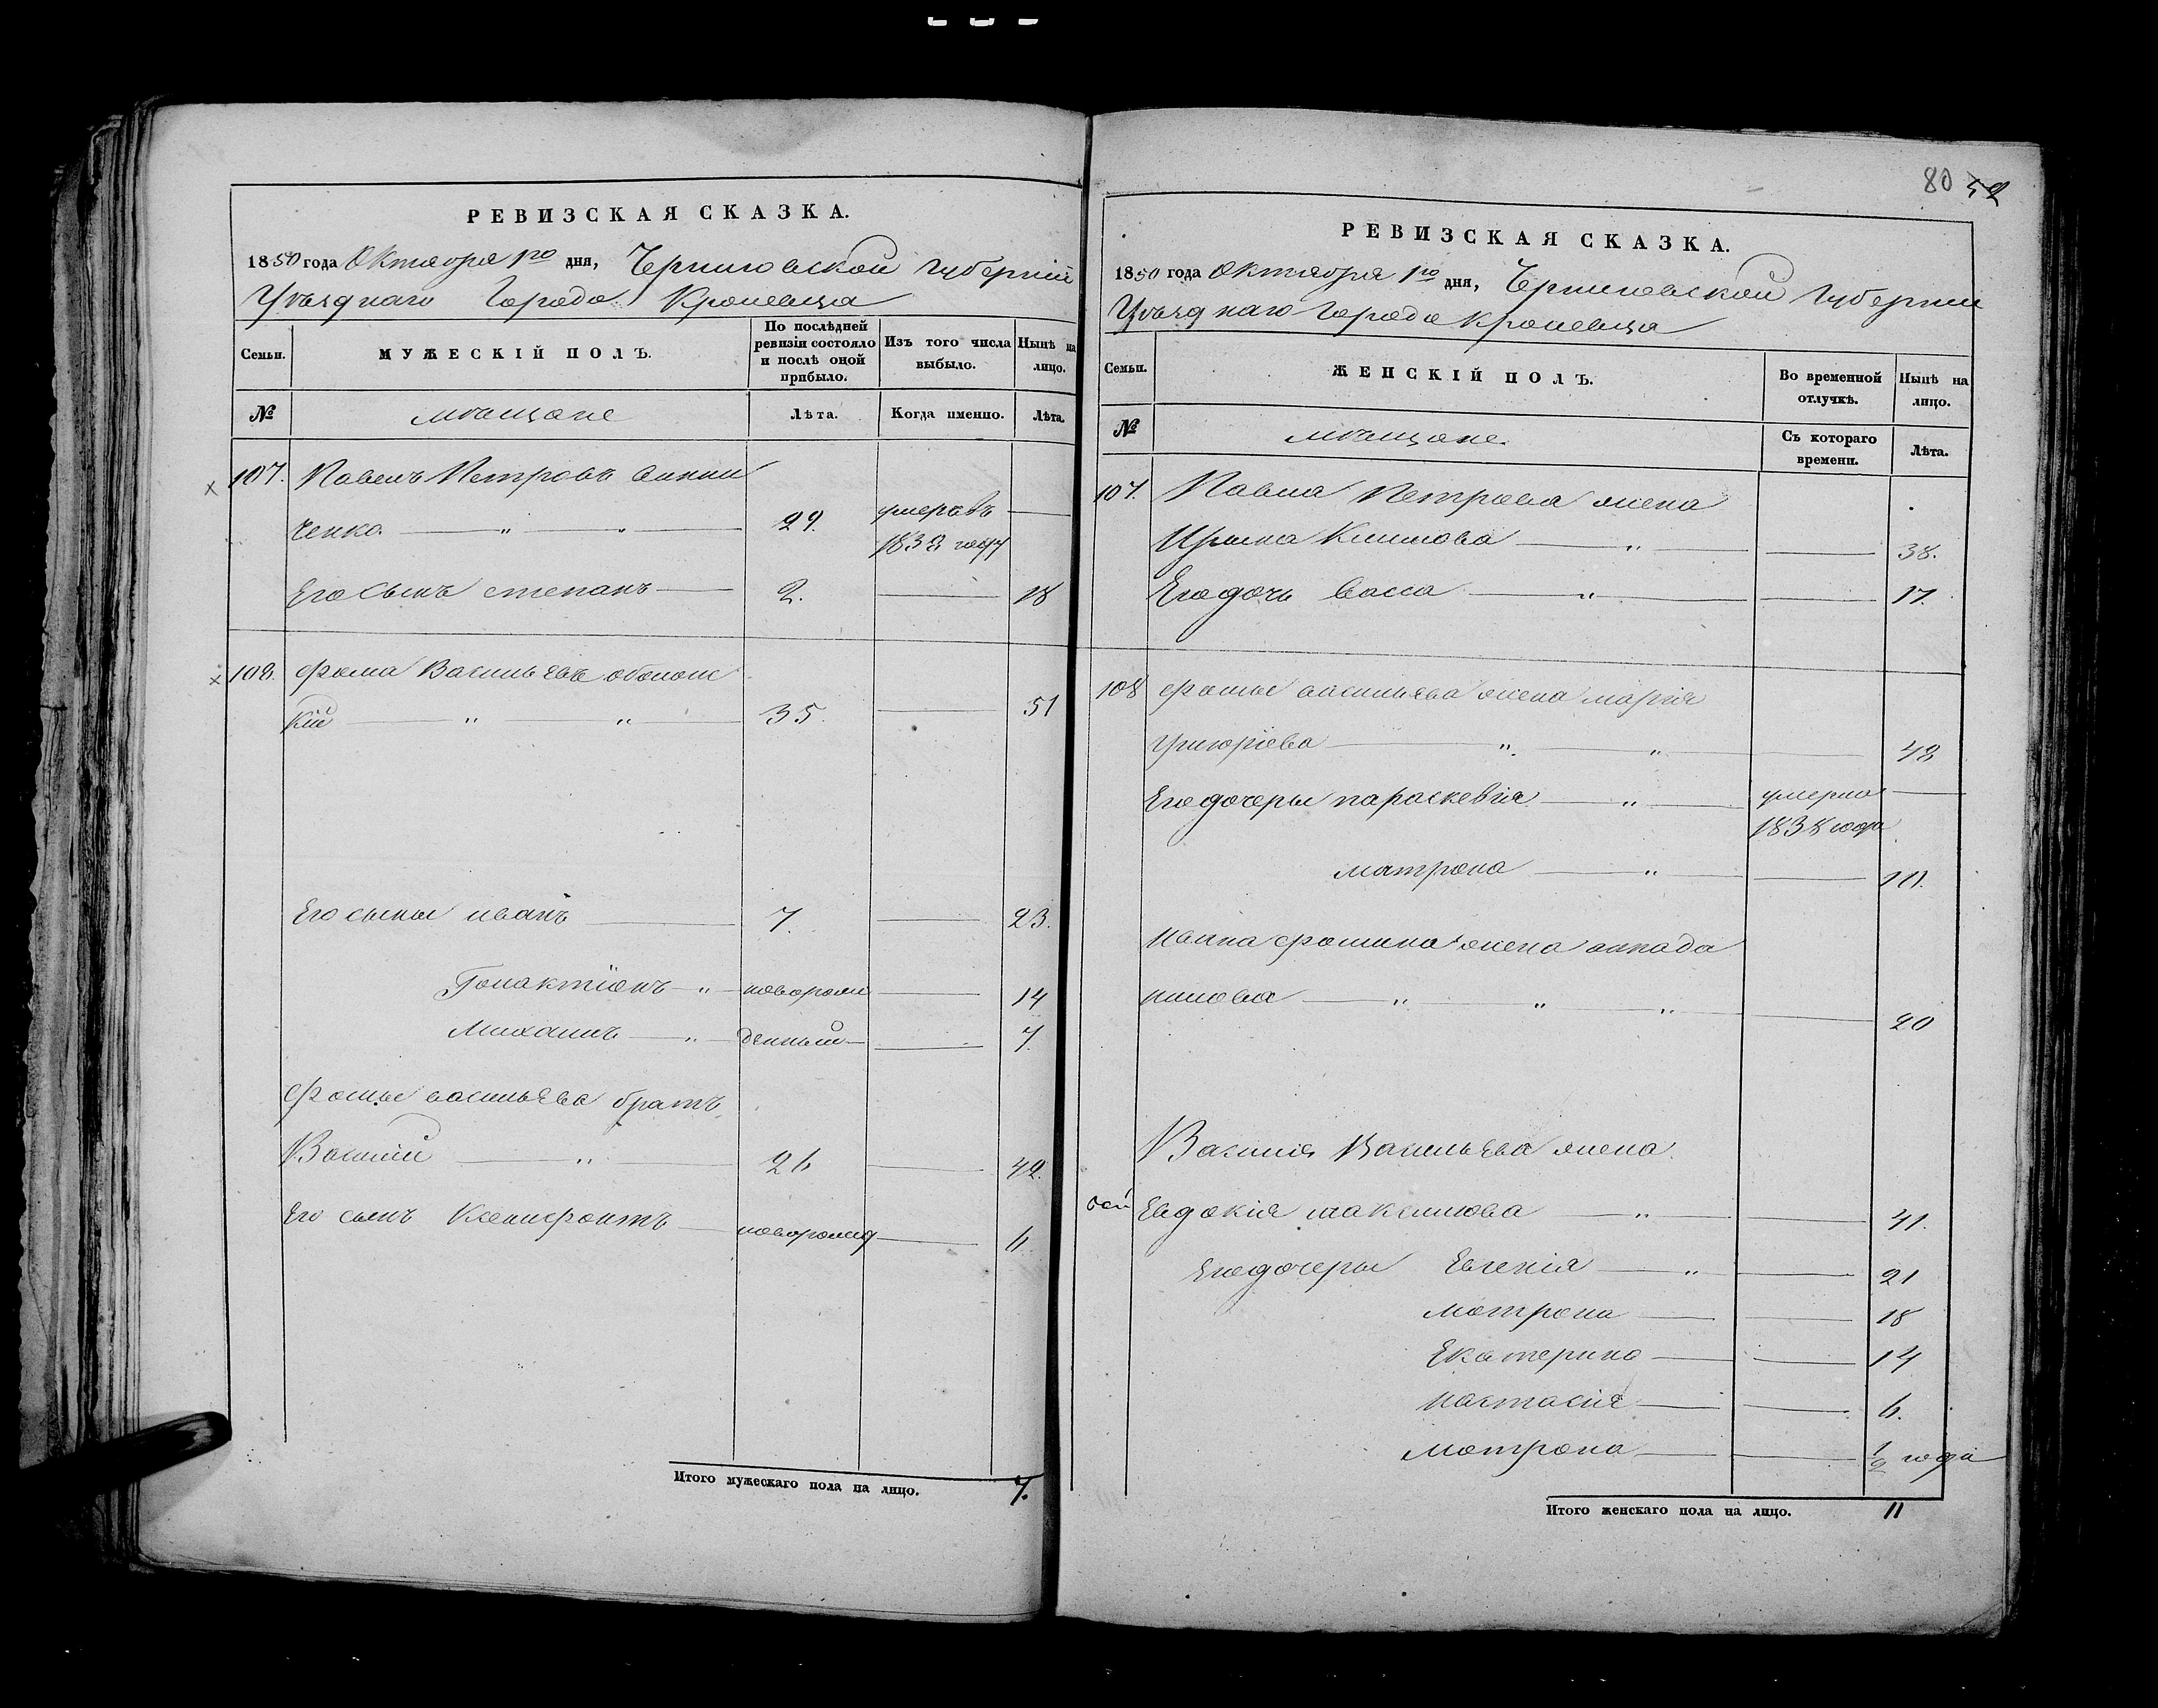 РЕВИЗСКАЯ СКАЗКА.
1850 года Октября 1го дня, Черниговской губерніи
Уѣзднаго Города Кролевца
Семьи.
МУЖЕСКІЙ ПОЛЪ.
По послѣдней ревизіи состояло и послѣ оной прибыло.
Изъ того числа выбыло.
Нынѣ на лицо.
№
мѣщане
Лѣта.
Когда именно.
Лѣта.
107. Павелъ Петровъ Винни
ченко 29. умеръ въ
183 году
Его сынъ степанъ 2. 18
108. Фома Васильевъ оболонс
кій 35. 51
Его сыны иванъ 7. 23.
Галактіонъ новорож 14
Михаилъ денныи 7.
Фомы васильева братъ
Василій 26 42.
Его сынъ Ксенофонтъ новорожд 6.
Итого мужескаго пола на лицо. 7.
80 52
РЕВИЗСКАЯ СКАЗКА.
1850 года Октября 1го дня, Черниговской Губерніи
Уѣзднаго Города Кролевца
Семьи.
ЖЕНСКІЙ ПОЛЪ.
Во временной отлучкѣ.
Нынѣ на лицо.
№
мѣщане.
Съ котораго времени.
Лѣта.
107. Павла Петрова жена
Ирина Климова 38.
Его дочь Васса 17.
108 Фомы васильева жена марія
григоріева 48
Его дочеры параскевія умерла
1838 года
матрона 10.
Ивана фомина жена
20
Василія Васильева жена
Евдокія максимова 41.
Его дочеры Евгенія 21
Мотрона 18
Екатерина 14
настасія 6.
Мотрона 1/2 года
Итого женскаго пола на лицо. 11